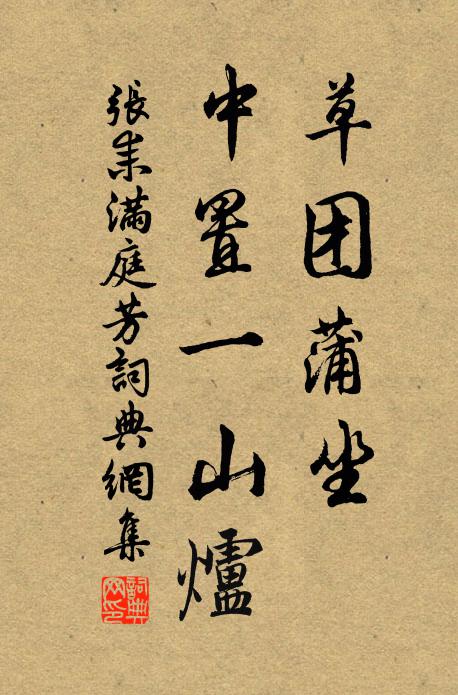 草团蒲坐
中置一山爐
張耒滿庭芳詞典網集
詞典网印